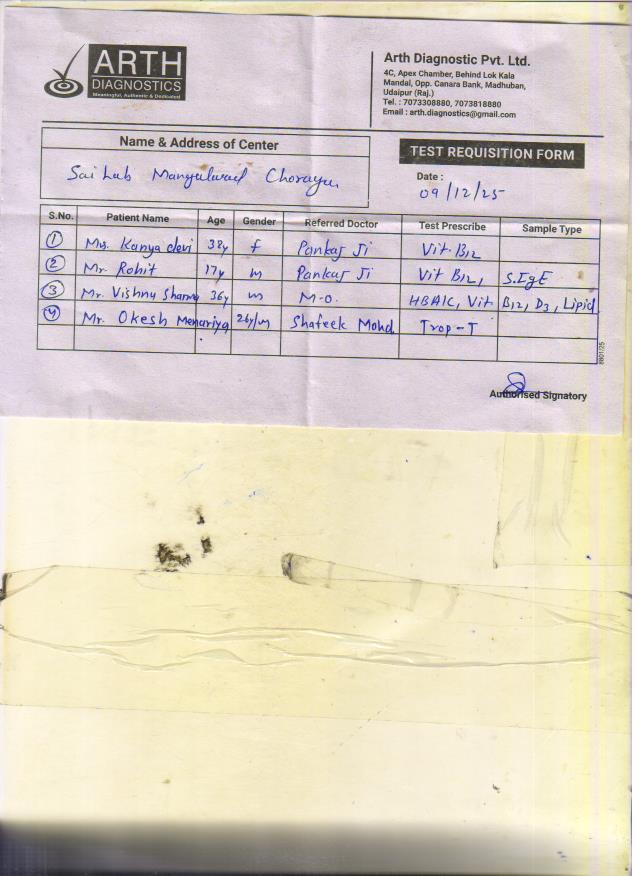 ARTH
DIAGNOSTICS
Meaningful, Authentic & Dedicated
Arth Diagnostic Pvt. Ltd.
4C, Apex Chamber, Behind Lok Kala
Mandal, Opp. Canara Bank, Madhuban,
Udaipur (Raj.)
Tel. : 7073308880, 7073818880
Email : arth.diagnostics@gmail.com
Name & Address of Center
Sai Lab
TEST REQUISITION FORM
Date :
09/12/25
S.No. Patient Name Age Gender Referred Doctor Test Prescribe Sample Type
1 Kanya devi 32y f Pankaj Ji Vit. B12
2 Mr. Rohit 17y m Pankaj Ji Vit B12, S.IgE
3 Mr. Vishnu Sharma 36y m M-O. HBA1C, Vit B12, D3, Lipid
4 Mr. Okesh Menariya 26y/m Shafeek Mohd Trop-T
Authorised Signatory